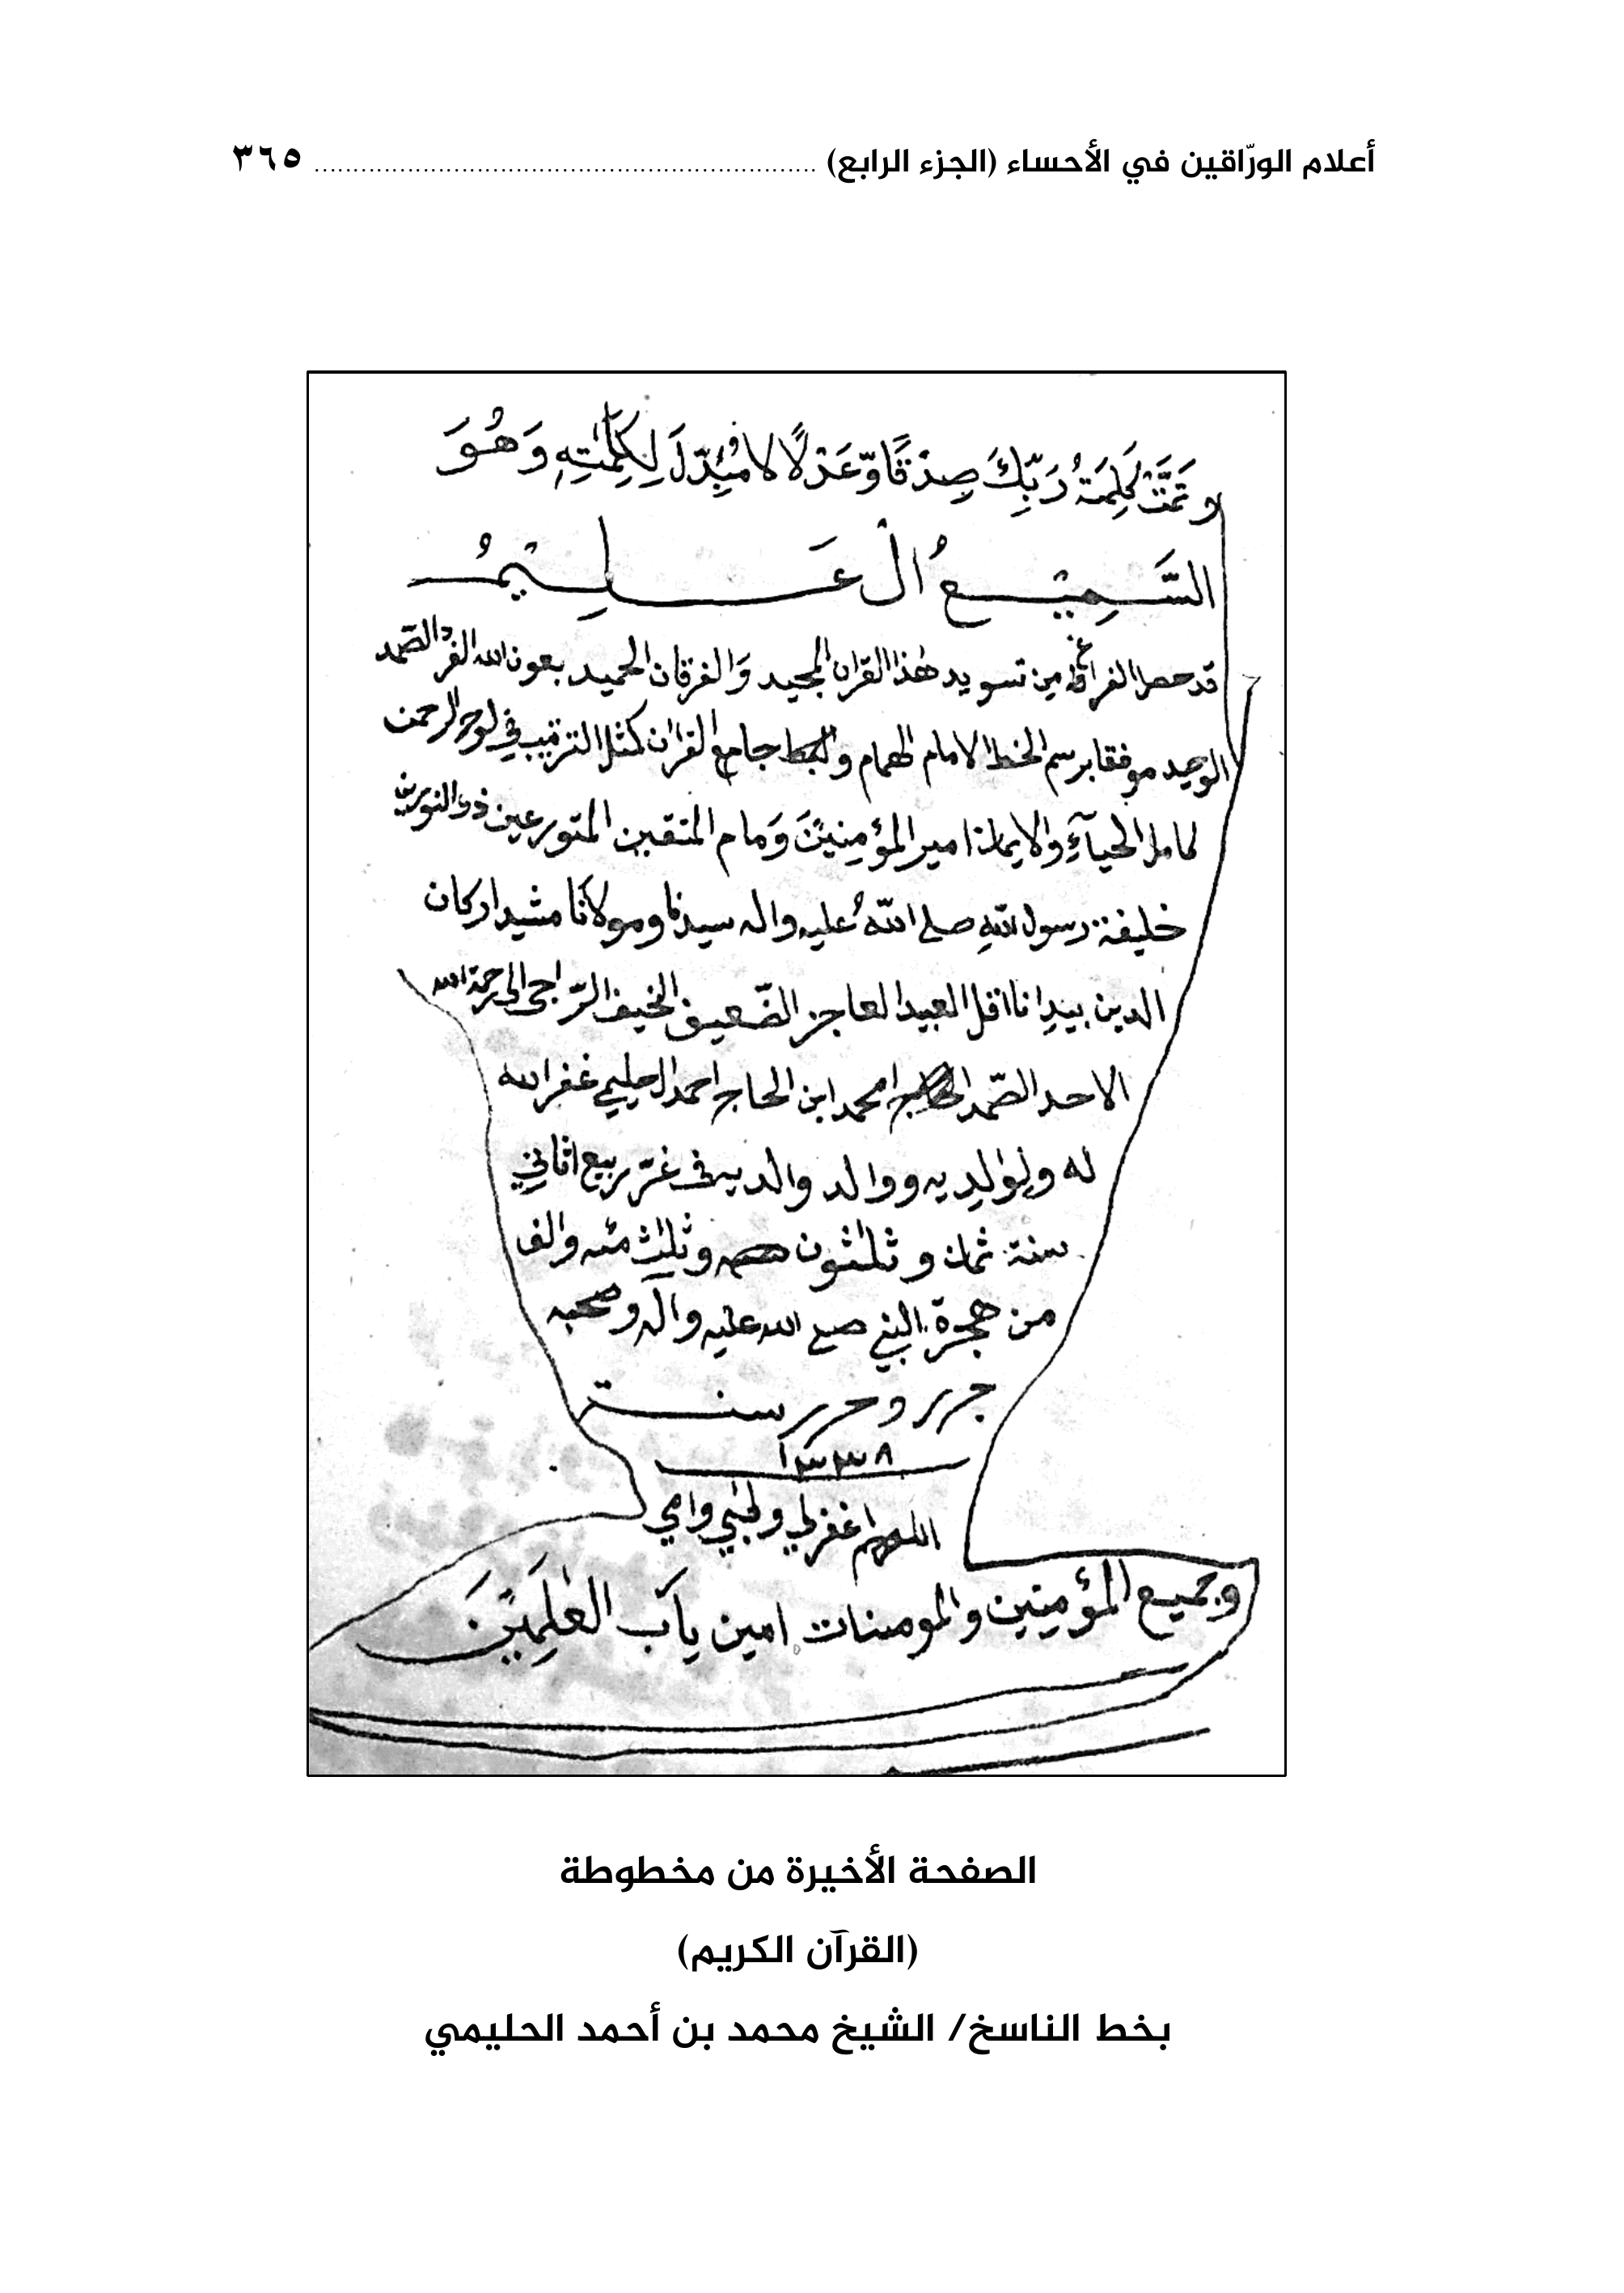 أعلام الورّاقين في الأحساء (الجزء الرابع) ................................................................ ٣٦٥
وَتَمَّتْ كَلِمَتُ رَبِّكَ صِدْقًا وَّعَدْلًا لَا مُبَدِّلَ لِكَلِمٰتِهٖ وَهُوَ
السَّمِيْعُ الْعَلِيْمُ
قد حصل الفراغ من تسويد هٰذا القران المجيد وَالفرقان الحميد بعون الله الفرد الصّمد
الوحيد موفقا برسم الخط الامام الهمام و جامع القرٰان كمثل الترتيب في لوح الرحمن
كامل الحيآءِ والايمان امير المؤمِنِيْنَ وَمام المتقين المتورعين ذو النورين
خليفة رسول اللهِ صلى اللّٰهُ عليه واله سيدنا ومولَانا مشيد اركان
الدين بيدِ انا اقل العبيد العاجز الضّعيف الخيف الرّاجى الى رحمة الله
الاحد الصّمد محمد ابن الحاج احمد الحليمي غفر الله
له ولِوٰلِديه ووالد والديه فى غرّ ربيع اثاني
سنة ثمان و ثلٰثون وثلٰث مئه والف
من هجرة النبي صلى الله عليه واله وصحبه
جرر وحرر سنة
١٣٣٨
اللهم اغفرلي ولابي وامي
وجميع المؤمِنِين والمومنات امين يآب العٰلَمِيْنَ
الصفحة الأخيرة من مخطوطة
(القرآن الكريم)
بخط الناسخ/ الشيخ محمد بن أحمد الحليمي